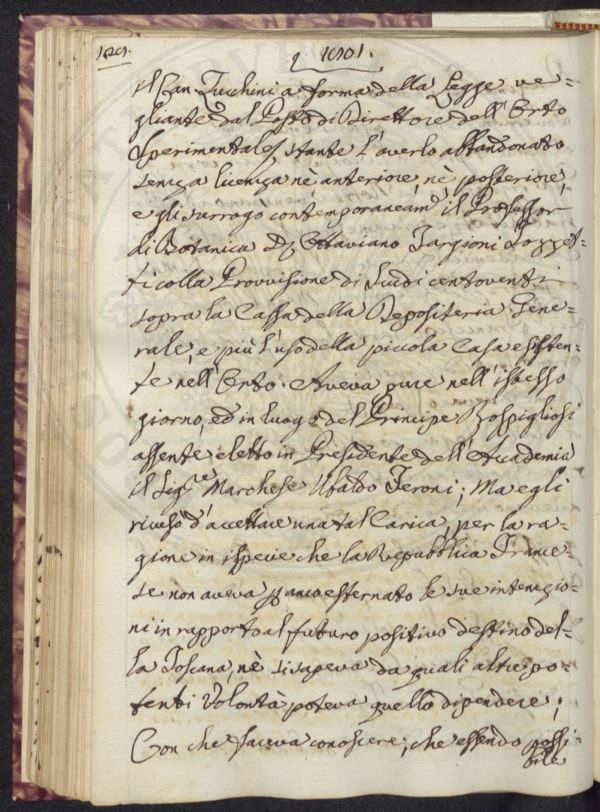 1801.
il Can. Zucchini a forma della Legge ve=
gliante dal Posto di Direttore dell'Orto
Sperimentale, stante l'averlo abbandonato
senza licenza nè anteriore, nè posteriore,
e gli surrogò contemporaneamte. il Professor
di Botanica Dr. Ottaviano Targioni Tozzet=
ti colla Provvisione di Scudi centoventi
sopra la Cassa della Depositeria Gene=
rale, e più l'uso della piccola Casa esisten=
te nell'Orto. Aveva pure nell'istesso
giorno, ed in luogo del Principe Rospigliosi
assente eletto in Presidente dell'Accademia
il Sigre. Marchese Ubaldo Feroni; Ma egli
ricusò d'accettare una tal Carica, per la ra=
gione in ispecie che la Repubblica France=
se non aveva per anco esternato le sue intenzio=
ni in rapporto al futuro positivo destino del=
la Toscana, nè si sapeva da quali altre po=
tenti Volontà poteva quello dipendere;
Con che faceva conoscere, che essendo possi=
bile